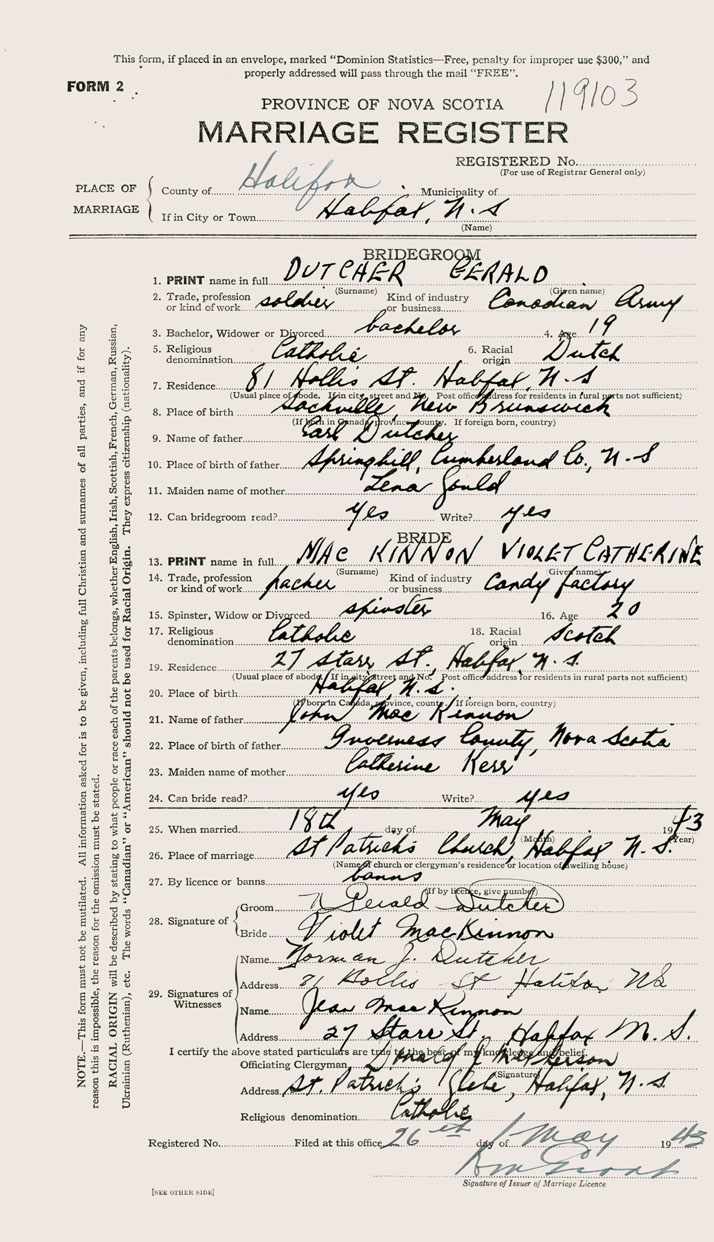 This form, if placed in an envelope, marked "Dominion Statistics—Free, penalty for improper use $300," and
properly addressed will pass through the mail "FREE".
FORM 2
119103
PROVINCE OF NOVA SCOTIA
MARRIAGE REGISTER
REGISTERED No.
(For use of Registrar General only)
PLACE OF MARRIAGE
County of Halifax Municipality of
If in City or Town Halifax, N.S
(Name)
BRIDEGROOM
1. PRINT name in full DUTCHER GERALD
(Surname) (Given name)
2. Trade, profession or kind of work soldier Kind of industry or business Canadian Army
3. Bachelor, Widower or Divorced bachelor 4. Age 19
5. Religious denomination Catholic 6. Racial origin Dutch
7. Residence 81 Hollis St. Halifax, N-S
(Usual place of abode. If in city, street and No. Post office address for residents in rural parts not sufficient)
8. Place of birth Sackville, New Brunswick
(If born in Canada, province, county. If foreign born, country)
9. Name of father Earl Dutcher
10. Place of birth of father Springhill, Cumberland Co., N-S
11. Maiden name of mother Lena Gould
12. Can bridegroom read? yes Write? yes
BRIDE
13. PRINT name in full MAC KINNON VIOLET CATHERINE
(Surname) (Given name)
14. Trade, profession or kind of work packer Kind of industry or business Candy factory
15. Spinster, Widow or Divorced spinster 16. Age 20
17. Religious denomination Catholic 18. Racial origin Scotch
19. Residence 27 Starr St., Halifax, N.S.
(Usual place of abode. If in city, street and No. Post office address for residents in rural parts not sufficient)
20. Place of birth Halifax, N.S.
(If born in Canada, province, county. If foreign born, country)
21. Name of father John MacKinnon
22. Place of birth of father Inverness County, Nova Scotia
23. Maiden name of mother Catherine Kerr
24. Can bride read? yes Write? yes
25. When married 18th day of May 1943
(Month) (Year)
26. Place of marriage St Patrick's Church, Halifax N.S.
(Name of church or clergyman's residence or location of dwelling house)
27. By licence or banns banns
(If by licence, give number)
28. Signature of
Groom Gerald Dutcher
Bride Violet MacKinnon
29. Signatures of Witnesses
Name Norman J. Dutcher
Address 81 Hollis St Halifax NS
Name Jean MacKinnon
Address 27 Starr St., Halifax N.S.
I certify the above stated particulars are true to the best of my knowledge and belief.
Officiating Clergyman Donald
(Signature)
Address St. Patrick's Glebe, Halifax, N.S
Religious denomination Catholic
Registered No. Filed at this office 26th day of May 1943
Signature of Issuer of Marriage Licence
[SEE OTHER SIDE]
NOTE.—This form must not be mutilated. All information asked for is to be given, including full Christian and surnames of all parties, and if for any
reason this is impossible, the reason for the omission must be stated.
RACIAL ORIGIN will be described by stating to what people or race each of the parents belongs, whether English, Irish, Scottish, French, German, Russian,
Ukrainian (Ruthenian), etc. The words "Canadian" or "American" should not be used for Racial Origin. They express citizenship (nationality).